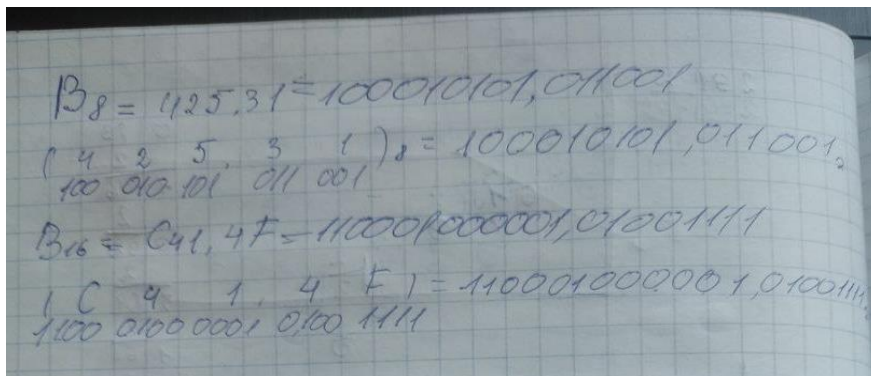 B₈ = 425,31 = 100010101,011001
( 4 2 5, 3 1 )₈ = 100010101,011001₂
100 010 101 011 001
B₁₆ = C41,4F = 110001000001,01001111
( C 4 1, 4 F ) = 110001000001,01001111₂
1100 0100 0001 0100 1111